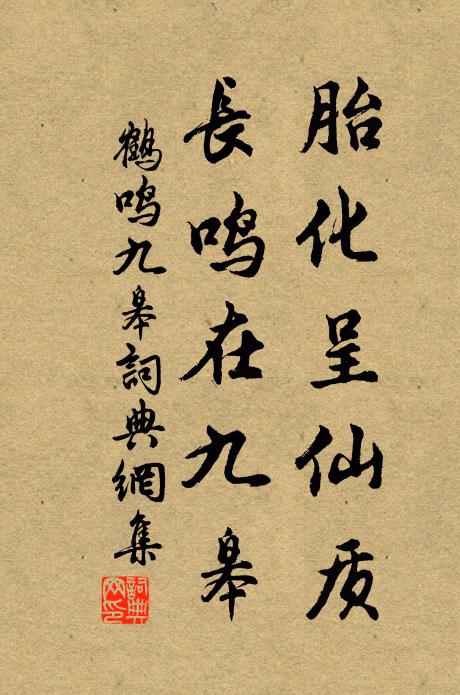 胎化呈仙质
長鸣在九皋
鶴鸣九皋詞典網集
詞典网印